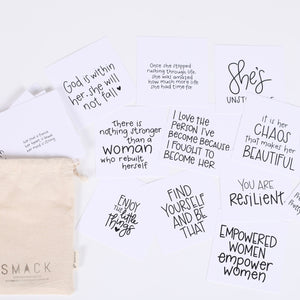 God is within
her, she will
not fall
Once she stopped
rushing through life
she was amazed
how much more life
she had time for
She's
UNST
There is
nothing stronger
than a
woman
who rebuilt
herself
I LOVE THE
PERSON I'VE
BECOME BECAUSE
I FOUGHT TO
BECOME HER
It is her
CHAOS
that makes her
BEAUTIFUL
ENJOY
THE little
things
FIND
YOURSELF
AND BE
THAT
YOU ARE
RESILIENT
EMPOWERED
WOMEN
empower
women
SMACK